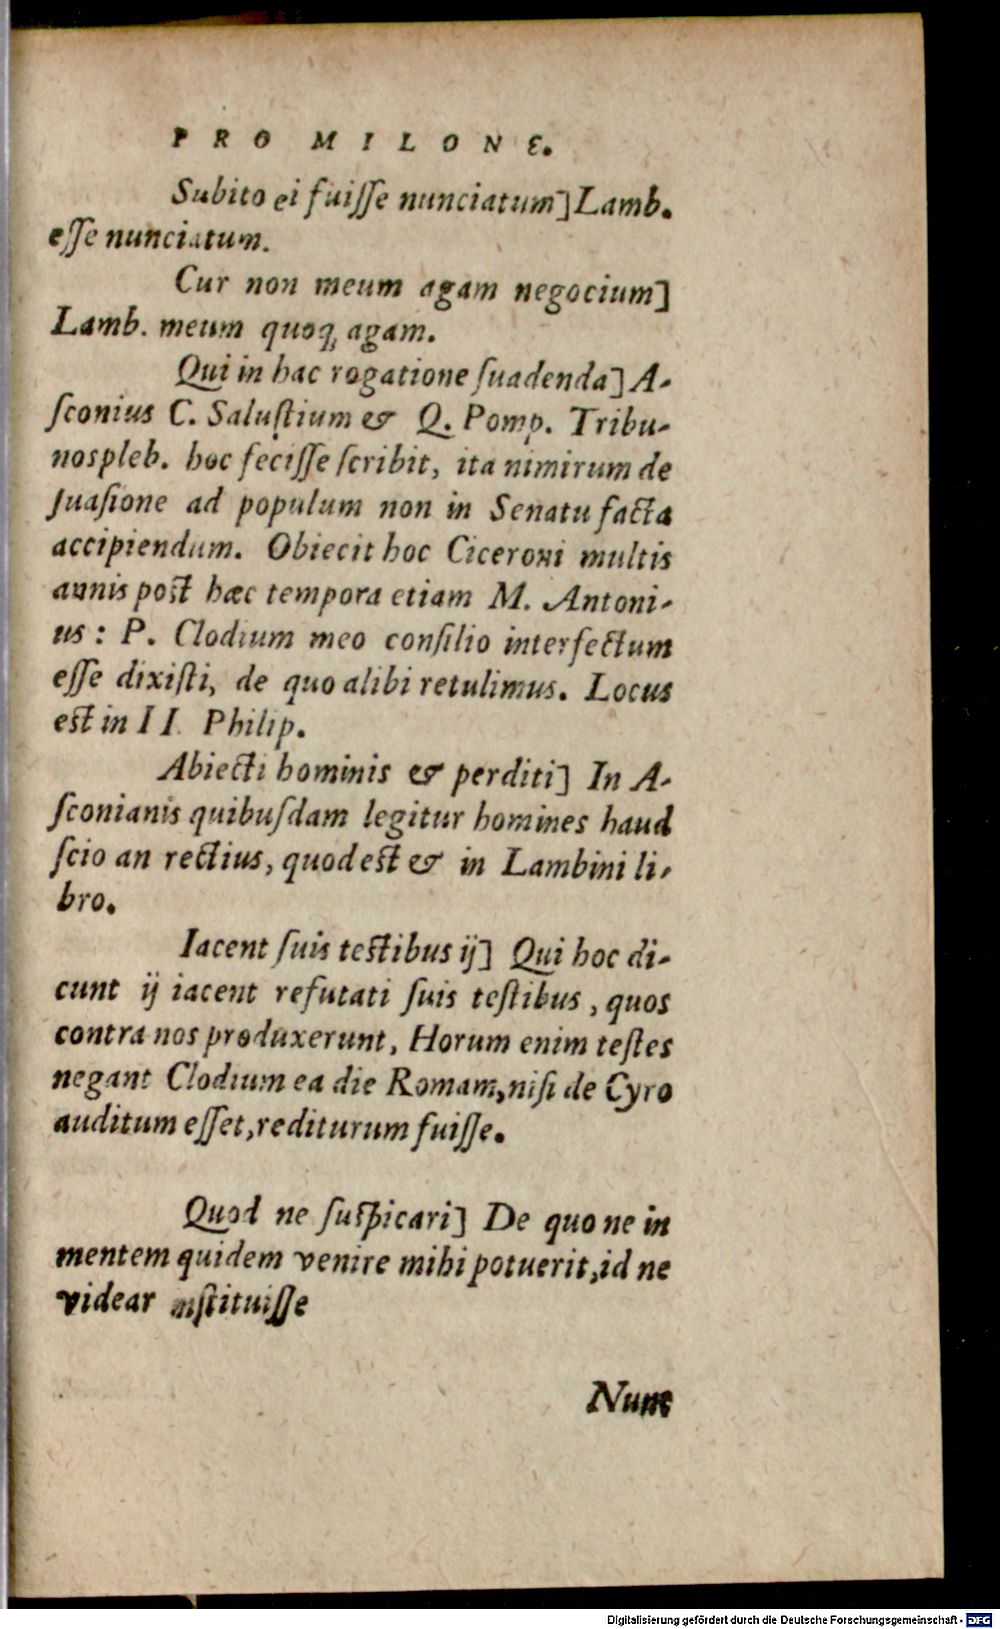 PRO MILONE.
Subito ei fuiſſe nunciatum] Lamb.
eſſe nunciatum.
Cur non meum agam negocium]
Lamb. meum quoq; agam.
Qui in hac rogatione ſuadenda] A-
ſconius C. Saluſtium & Q. Pomp. Tribu-
nospleb. hoc feciſſe ſcribit, ita nimirum de
ſuaſione ad populum non in Senatu facta
accipiendum. Obiecit hoc Ciceroni multis
annis post hæc tempora etiam M. Antoni-
us: P. Clodium meo conſilio interfectum
eſſe dixiſti, de quo alibi retulimus. Locus
est in II. Philip.
Abiecti hominis & perditi] In A-
ſconianis quibuſdam legitur homines haud
ſcio an rectius, quod est & in Lambini li-
bro.
Iacent ſuis testibus ij] Qui hoc di-
cunt ij iacent refutati ſuis teſtibus, quos
contra nos produxerunt, Horum enim teſtes
negant Clodium ea die Romam, niſi de Cyro
auditum eſſet, rediturum fuiſſe.
Quod ne ſuſpicari] De quo ne in
mentem quidem venire mihi potuerit, id ne
videar inſtituiſſe
Nunc
Digitalisierung gefördert durch die Deutsche Forschungsgemeinschaft - DFG